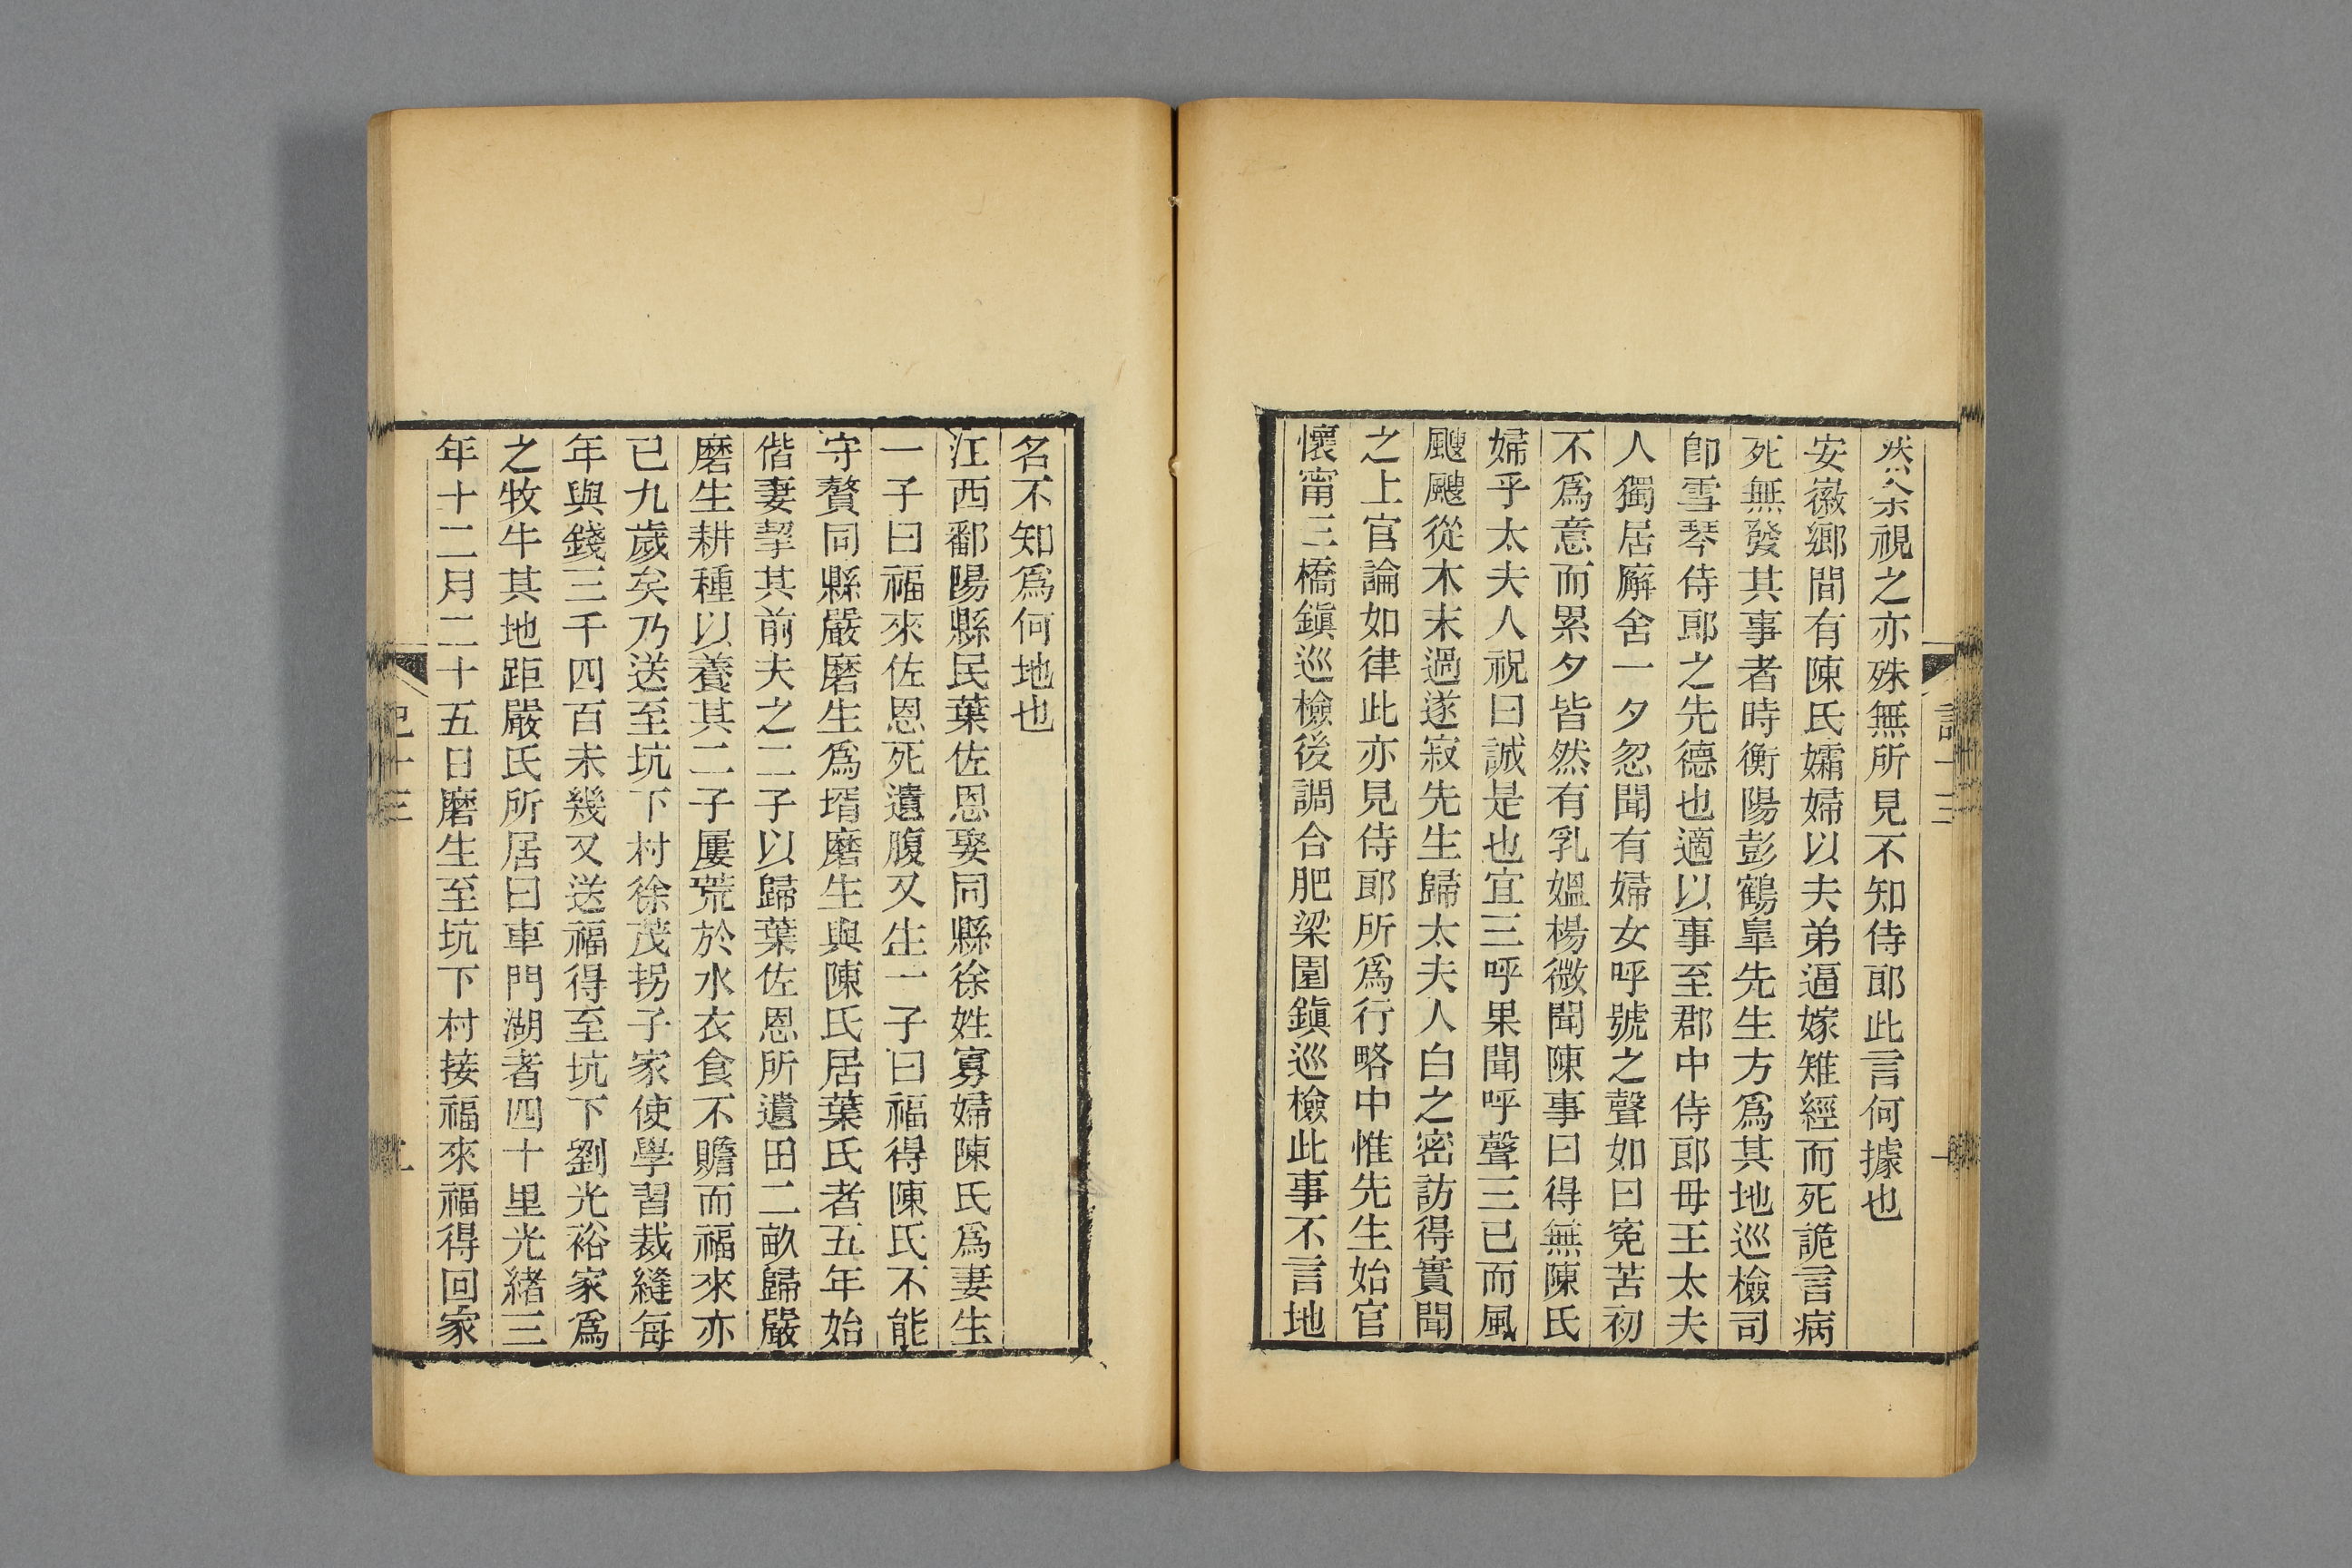 然余視之亦殊無所見不知侍郎此言何據也
安徽鄉間有陳氏孀婦以夫弟逼嫁雉經而死詭言病
死無發其事者時衡陽彭鶴皐先生方爲其地巡檢司
卽雪琴侍郎之先德也適以事至郡中侍郎母王太夫
人獨居廨舍一夕忽聞有婦女呼號之聲如曰寃苦初
不爲意而累夕皆然有乳媼楊微聞陳事曰得無陳氏
婦乎太夫人祝曰誠是也宜三呼果聞呼聲三已而風
颼颼從木末過遂寂先生歸太夫人白之密訪得實聞
之上官論如律此亦見侍郎所爲行略中惟先生始官
懷甯三橋鎭巡檢後調合肥梁園鎭巡檢此事不言地
名不知爲何地也
江西鄱陽縣民葉佐恩娶同縣徐姓寡婦陳氏爲妻生
一子曰福來佐恩死遺腹又生一子曰福得陳氏不能
守贅同縣嚴磨生爲壻磨生與陳氏居葉氏者五年始
偕妻挈其前夫之二子以歸葉佐恩所遺田二畝歸嚴
磨生耕種以養其二子屢荒於水衣食不贍而福來亦
已九歲矣乃送至坑下村徐茂拐子家使學習裁縫每
年與錢三千四百未幾又送福得至坑下劉光裕家爲
之牧牛其地距嚴氏所居曰車門湖者四十里光緒三
年十二月二十五日磨生至坑下村接福來福得回家